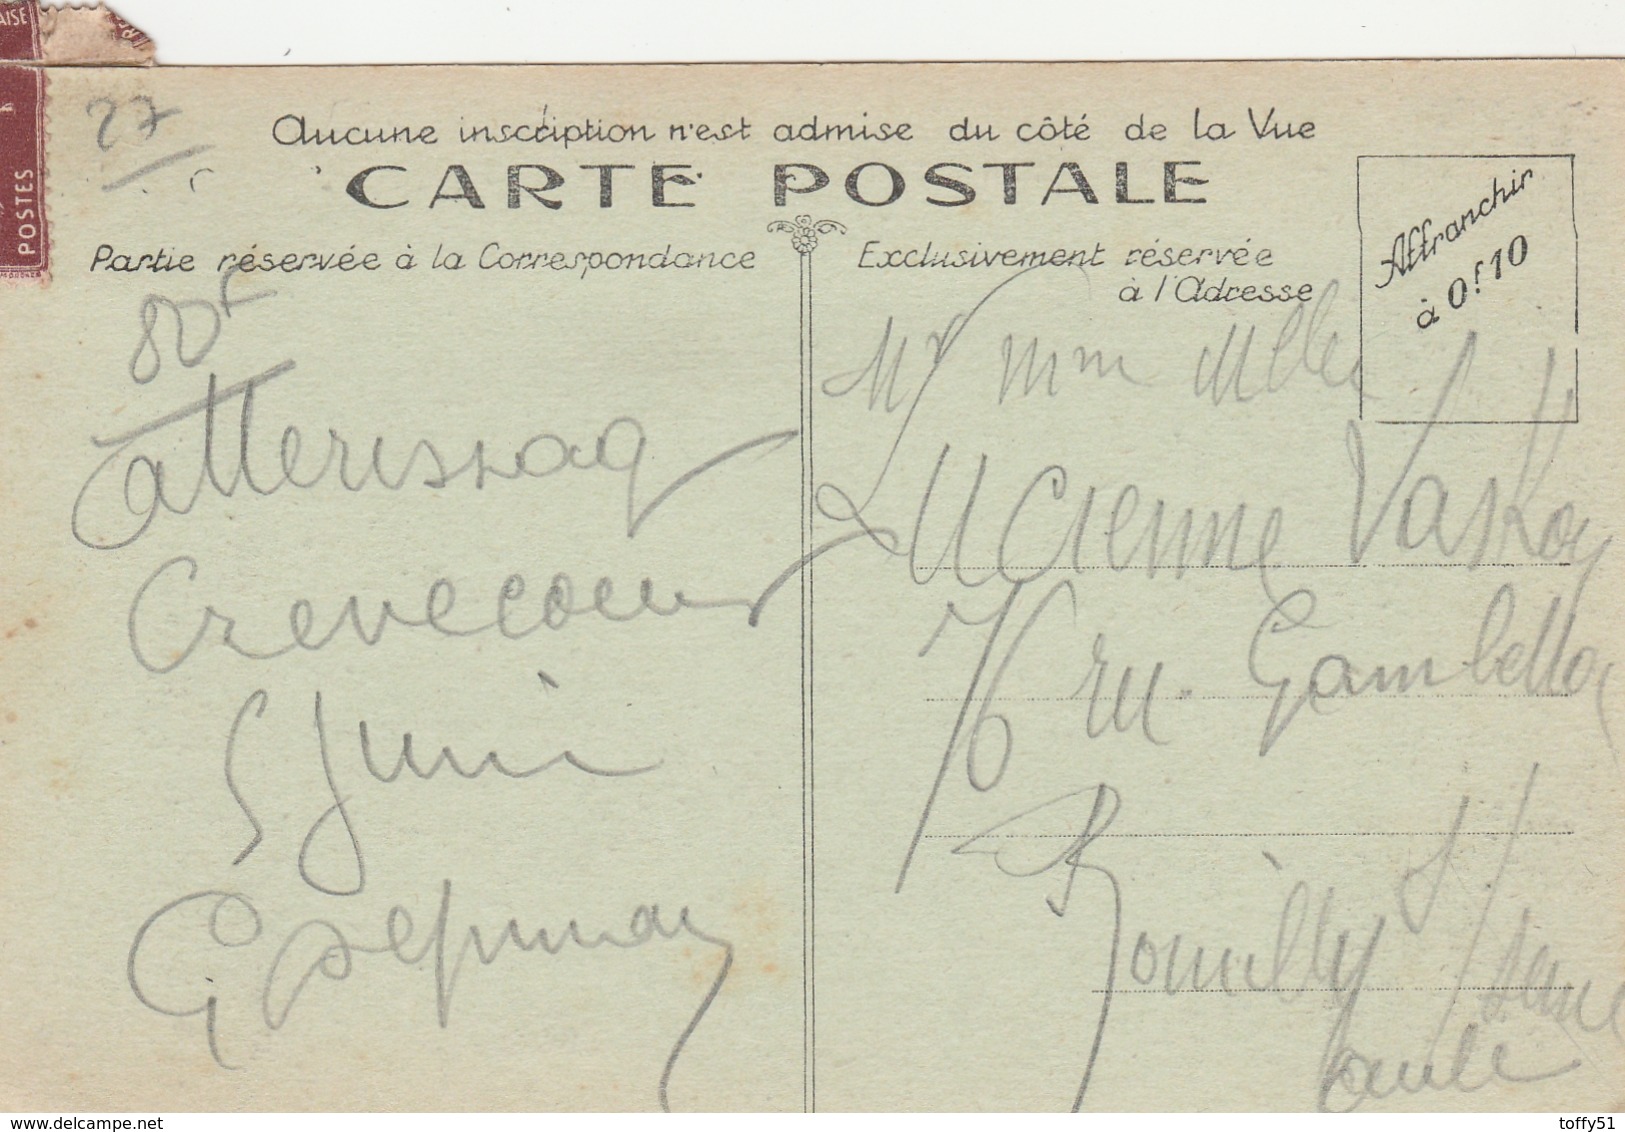 AISE
POSTES
27
Aucune inscription n'est admise du côté de la Vue
CARTE POSTALE
Partie réservée à la Correspondance
Exclusivement réservée
à l'Adresse
Affranchir
à 0f.10
80F
atterissag
Crevecoeur
5 Juin
Mr mm Mlle
Lucienne
76 ru. Gambetta
Romilly s/ seine
aube
www.delcampe.net
toffy51